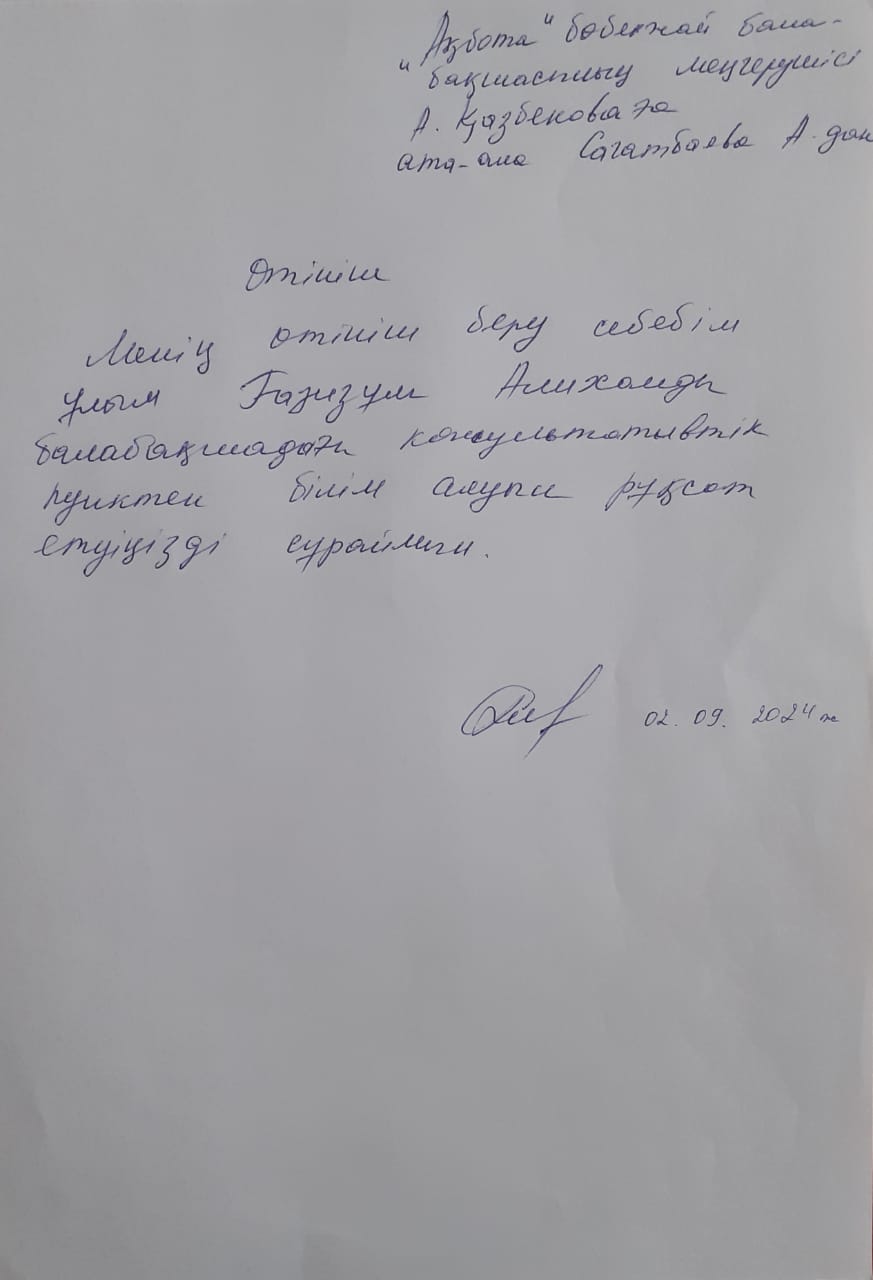 "Ақбота" бөбекжай бала-
"бақшасының меңгерушісі
А. Қазбековаға
ата-ана Сагатбаева А.дан
Өтініш
Менің өтініш беру себебім
ұлым Ғазизұлы Алиханды
балабақшадағы консультативтік
пунктен білім алуғы рұқсат
етуіңізді сұраймын.
02.09.2024 ж